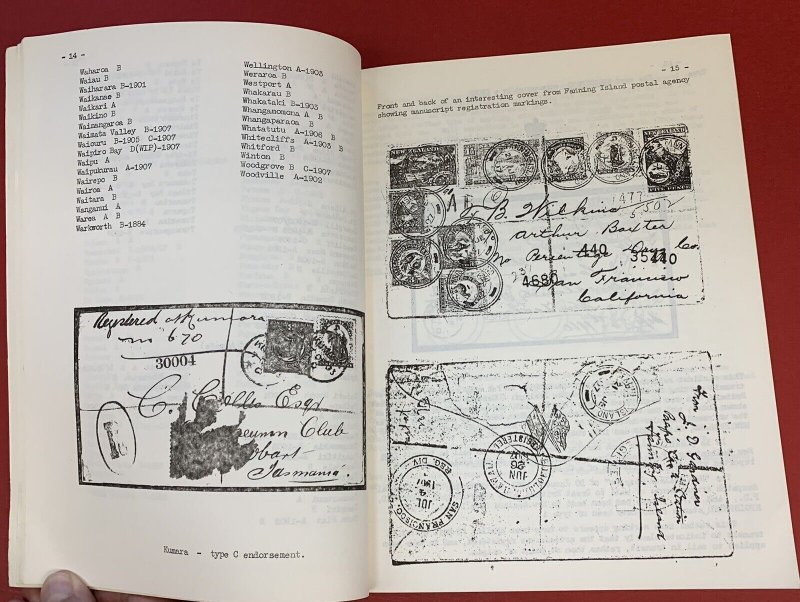 - 14 -
Waharoa B
Waiau B
Waiharara B-1901
Waikanae B
Waikari A
Waikino B
Waimangaroa B
Waimata Valley B-1907
Waiouru B-1905 C-1907
Waipiro Bay D(WIP)-1907
Waipu A
Waipukurau A-1907
Wairepo B
Wairoa A
Waitara B
Wanganui A
Warea A B
Warkworth B-1884
Wellington A-1903
Weraroa B
Westport A
Whakarau B
Whakataki B-1903
Whangamomona A B
Whangaparaoa B
Whatatutu A-1906 B
Whitecliffs A-1903 B
Whitford B
Winton B
Woodgrove B C-1907
Woodville A-1902
Registered at Kumara
no 670
30004
C. Collis Esqr
Club
Hobart
Tasmania.
R
Kumara - type C endorsement.
- 15 -
Front and back of an interesting cover from Fanning Island postal agency
showing manuscript registration markings.
NEW ZEALAND
NEW ZEALAND
FIVE PENCE
A R
1477
B. Wilkins
Arthur Baxter
No Percentage Drug Co.
440
35440
4680
San Francisco
California
REGISTERED
JUN
26
1907
SAN FRANCISCO,
JUL
4
1907
REG. DIV.
From
Island